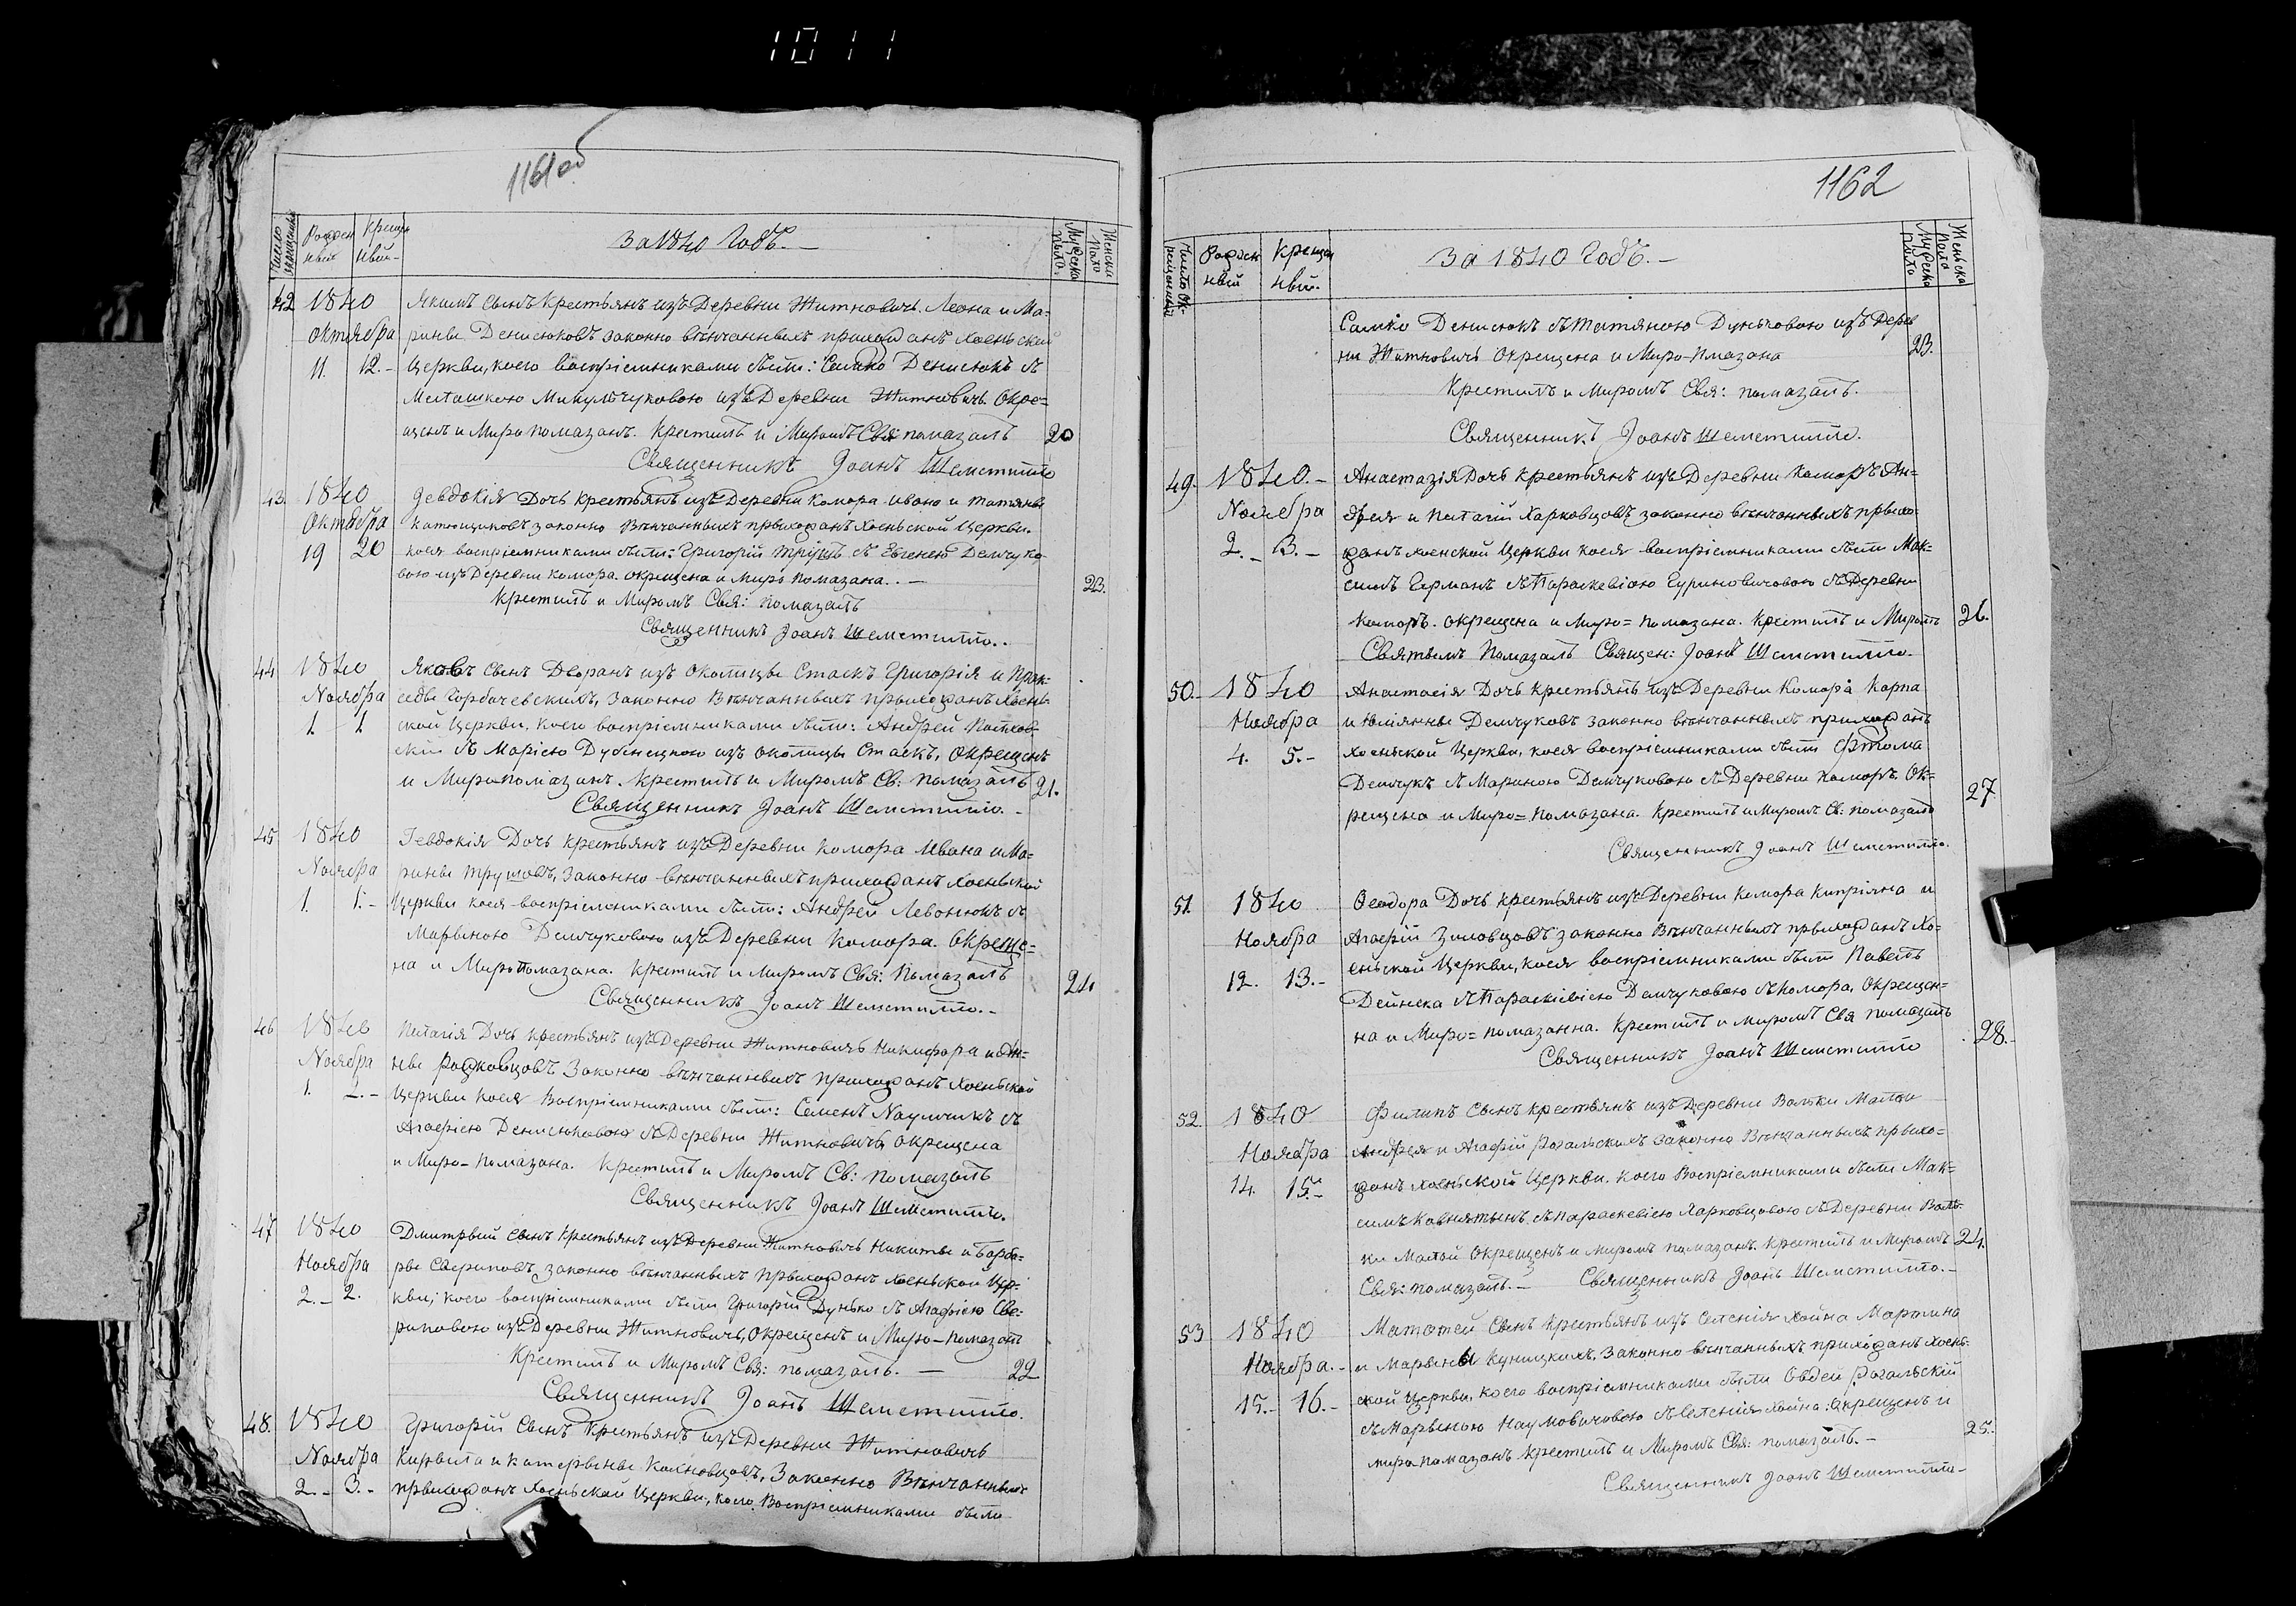 1011
1161об
Число окрещенныхъ
Рожден
ный
Крещен
ный
За 1840 Годъ.
Мужеска пола
Женска пола
42 1840 Якимъ Сынъ Крестьянъ изъ Деревни Житновичъ Леона и Ма=
Октября рины Денисюковъ законно вѣнчанныхъ прихожанъ Хоенской
11. 12. Церкви, коего воспріемниками были: Семко Денисюкъ съ
Миколчуковою изъ Деревни Житновичъ Окре=
щенъ и Миропомазанъ. Крестилъ и Миромъ Свя помазалъ 20
Священникъ Іоанъ Шеметилло
43. 1840 Девдокія Дочь Крестьянъ изъ Деревни Комора Ивана и Татяны
Октября законно Вѣнчанныхъ прыхожанъ Хоеньской Церкви.
19 20 коея воспріемниками были: Григорій съ Евгенею Демчуко
вою изъ Деревни Комора окрещена и Миро помазана. 23.
Крестилъ и Миромъ Свя: помазалъ
Священникъ Іоанъ Шеметилло.
44 1840 Яковъ Сынъ Дворанъ изъ Околицы Стаскъ Григорія и Прак=
Ноября седы Горбачевскихъ, Законно Вѣнчанныхъ прыхожанъ Хоень
1. 1. ской Церкви, коего воспріемниками были: Андрей
скій съ Маріею Дубинецкою изъ околицы Стаскъ, Окрещенъ
и Миропомазанъ. Крестилъ и Миромъ Св: помазалъ 21.
Священникъ Іоанъ Шеметилло.
45 1840 Іевдокія Дочь Крестьянъ изъ Деревни Комора Ивана и Ма=
Ноября рины Трушовъ, Законно вѣнчанныхъ прихожанъ Хоеньской
1. 1. Церкви коея воспріемниками были: Андрей Левонюкъ съ
Марыною Демчуковою изъ Деревни Комора. Окреще=
на и Миропомазана. Крестилъ и Миромъ Свя: Помазалъ 24
Священникъ Іоанъ Шеметилло.
46 1840 Пилагія Дочь Крестьянъ изъ Деревни Житновичъ Никифора и Ан=
Ноября ны Рожковцовъ Законно вѣнчанныхъ прихожанъ Хоеньской
1. 2. Церкви коея Воспріемниками были: Семенъ Наумчикъ съ
Агафіею Денисюковою съ Деревни Житновичъ окрещена
и Миро-помазана. Крестилъ и Миромъ Св: помазалъ
Священникъ Іоанъ Шеметилло.
47 1840 Дмитрый Сынъ Крестьянъ изъ Деревни Житновичъ Никиты и Барба=
Ноября ры Свериповъ законно вѣнчанныхъ прыхожанъ Хоеньской Цер=
2. 2. кви; коего воспріемниками были Григорій Дунько съ Агафіею Све=
риповою изъ Деревни Житновичъ, Окрещенъ и Миро-помазанъ
Крестилъ и Миромъ Свя: помазалъ. 22
Священникъ Іоанъ Шеметилло.
48. 1840 Григорій Сынъ Крестьянъ изъ Деревни Житновичъ
Ноября Кирыла и Катерыны Законно Вѣнчанныхъ
2. 3. прыхожанъ Хоеньской Церкви, коего Воспріемниками были
1162
Число ок-
рещенныхъ
Рожден
ный
Крещен
ный.
За 1840 Годъ.
Мужеска пола
Женьска пола
Самко Денисюкъ съ Татяною Дуньковою изъ Дерев
ни Житновичъ Окрещена и Миро-Помазана 23.
Крестилъ и Миромъ Свя: помазалъ.
Священникъ Іоанъ Шеметилло.
49. 1840. Анастазія Дочь Крестьянъ изъ Деревни Коморъ Ан=
Ноября дрея и Пилагіи Харковцовъ законно вѣнчанныхъ прыхо=
2. 3. жанъ Хоенской Церкви коея воспріемниками были Мак=
симъ Германъ съ Параскевіою Гуриновичовою съ Деревни
Коморъ. окрещена и Миро=помазана. Крестилъ и Миромъ 26.
Святымъ Помазалъ Священ: Іоанъ Шеметилло.
50. 1840 Анастасія Дочь Крестьянъ изъ Деревни Комора Карпа
Ноября и Юліянны Демчуковъ законно вѣнчанныхъ прихожанъ
4. 5. Хоеньской Церкви, коея воспріемниками были
Демчукъ съ Мариною Демчуковою съ Деревни Коморъ. Ок=
рещена и Миро=помазана. Крестилъ и Миромъ Св: помазалъ 27.
Священникъ Іоанъ Шеметилло.
51. 1840 Феодора Дочь Крестьянъ изъ Деревни Комора Кипріяна и
Ноября Агафіи законно Вѣнчанныхъ прыхожанъ Хо=
12. 13. еньской Церкви, коея воспріемниками были Павелъ
Дейнека съ Параскіевіею Демчуковою съ Комора, Окрещен=
на и Миро=помазанна. Крестилъ и Миромъ Свя помазалъ 28.
Священникъ Іоанъ Шеметилло
52. 1840 Филипъ Сынъ Крестьянъ изъ Деревни Вольки Малой
Ноября Андрея и Агафіи Рогальскихъ законно Вѣнчанныхъ прыхо=
14. 15. жанъ Хоеньской Церкви. коего Воспріемниками были Мак=
симъ съ Параскевіею Харковцовою съ Деревни Воль=
ки Малой Окрещенъ и Миромъ помазанъ. Крестилъ и Миромъ 24.
Свя: помазалъ. Священникъ Іоанъ Шеметилло.
53 1840 Мататей Сынъ Крестьянъ изъ Селенія Хойна Мартина
Ноября. и Марыны Куницкихъ, Законно вѣнчанныхъ прихожанъ Хоень=
15. 16. ской Церкви, коего воспріемниками были Овдей Рогальскій
съ Марыною Наумовичовою съ Селенія Хойна: Окрещенъ и
мира помазанъ Крестилъ и Миромъ Свя: помазалъ. 25.
Священникъ Іоанъ Шеметилло